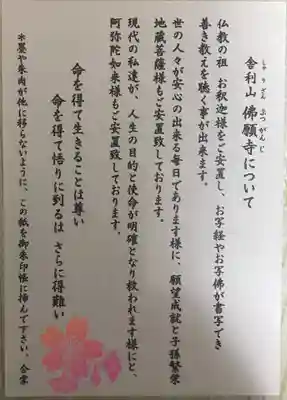 しゃり ざん ぶつ がん じ
舎利山 佛願寺について
仏教の祖 お釈迦様をご安置し、お写経やお写佛が書写でき
善き教えを聴く事が出来ます。
世の人々が安心の出来る毎日であります様に、願望成就と子孫繁栄
地蔵菩薩様もご安置致しております。
現代の私達が、人生の目的と使命が明確となり救われます様にと、
阿弥陀如来様もご安置致しております。
命を得て生きることは尊い
命を得て悟りに到るは さらに得難い
*墨や朱肉が他に移らないように、この紙を御朱印帳に挿んで下さい。合掌